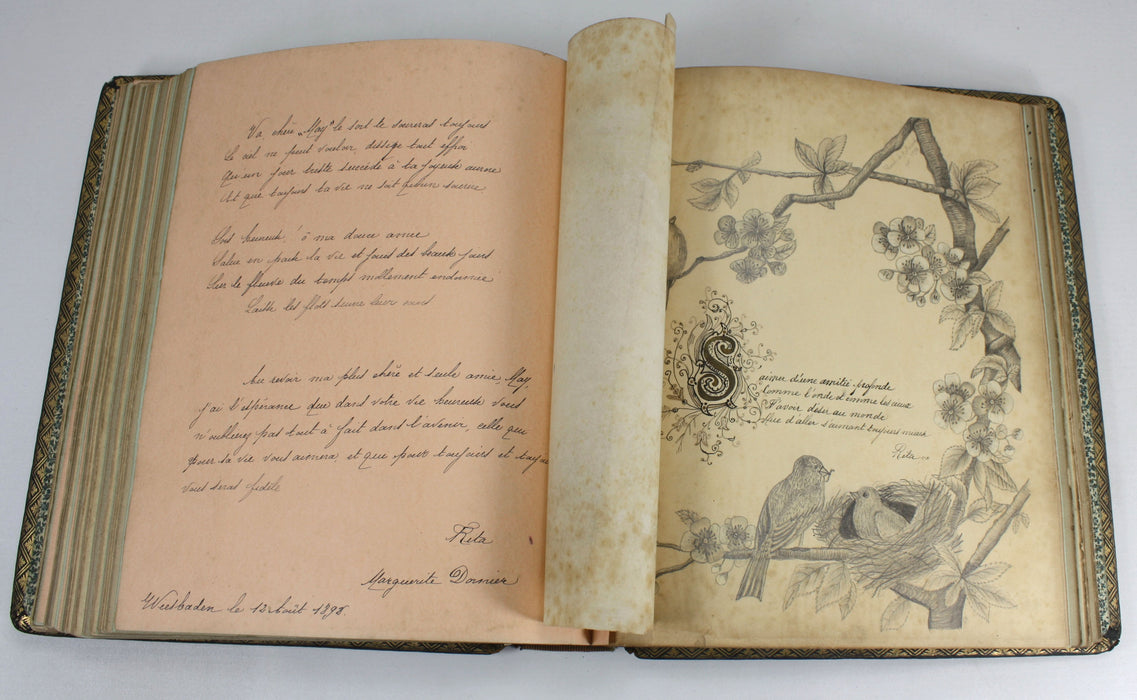 Va chère „May" le sort te sourira toujours
Le ciel ne peut vouloir, dissipe tout effroi
Qu'un jour triste succède à ta joyeuse aurore
Et que toujours ta vie ne soit
Sois heureuse! ô ma douce amie
Salue en paix la vie et jouis des beaux jours
Sur le fleuve du temps mollement endormie
Laisse les flots suivre leur cours
Au revoir ma plus chère et seule amie, May
j'ai l'espérance que dans votre vie heureuse vous
n'oublierez pas tout à fait dans l'avenir, celle qui
pour sa vie vous aimera et qui pour toujours et toujours
vous sera fidèle
Rita
Marguerite Dornier
Wiesbaden le 13 Août 1898.
S'aimer d'une amitié profonde
Comme l'onde et comme les eaux
N'avoir désir au monde
Que d'aller s'aimant toujours mieux
Rita